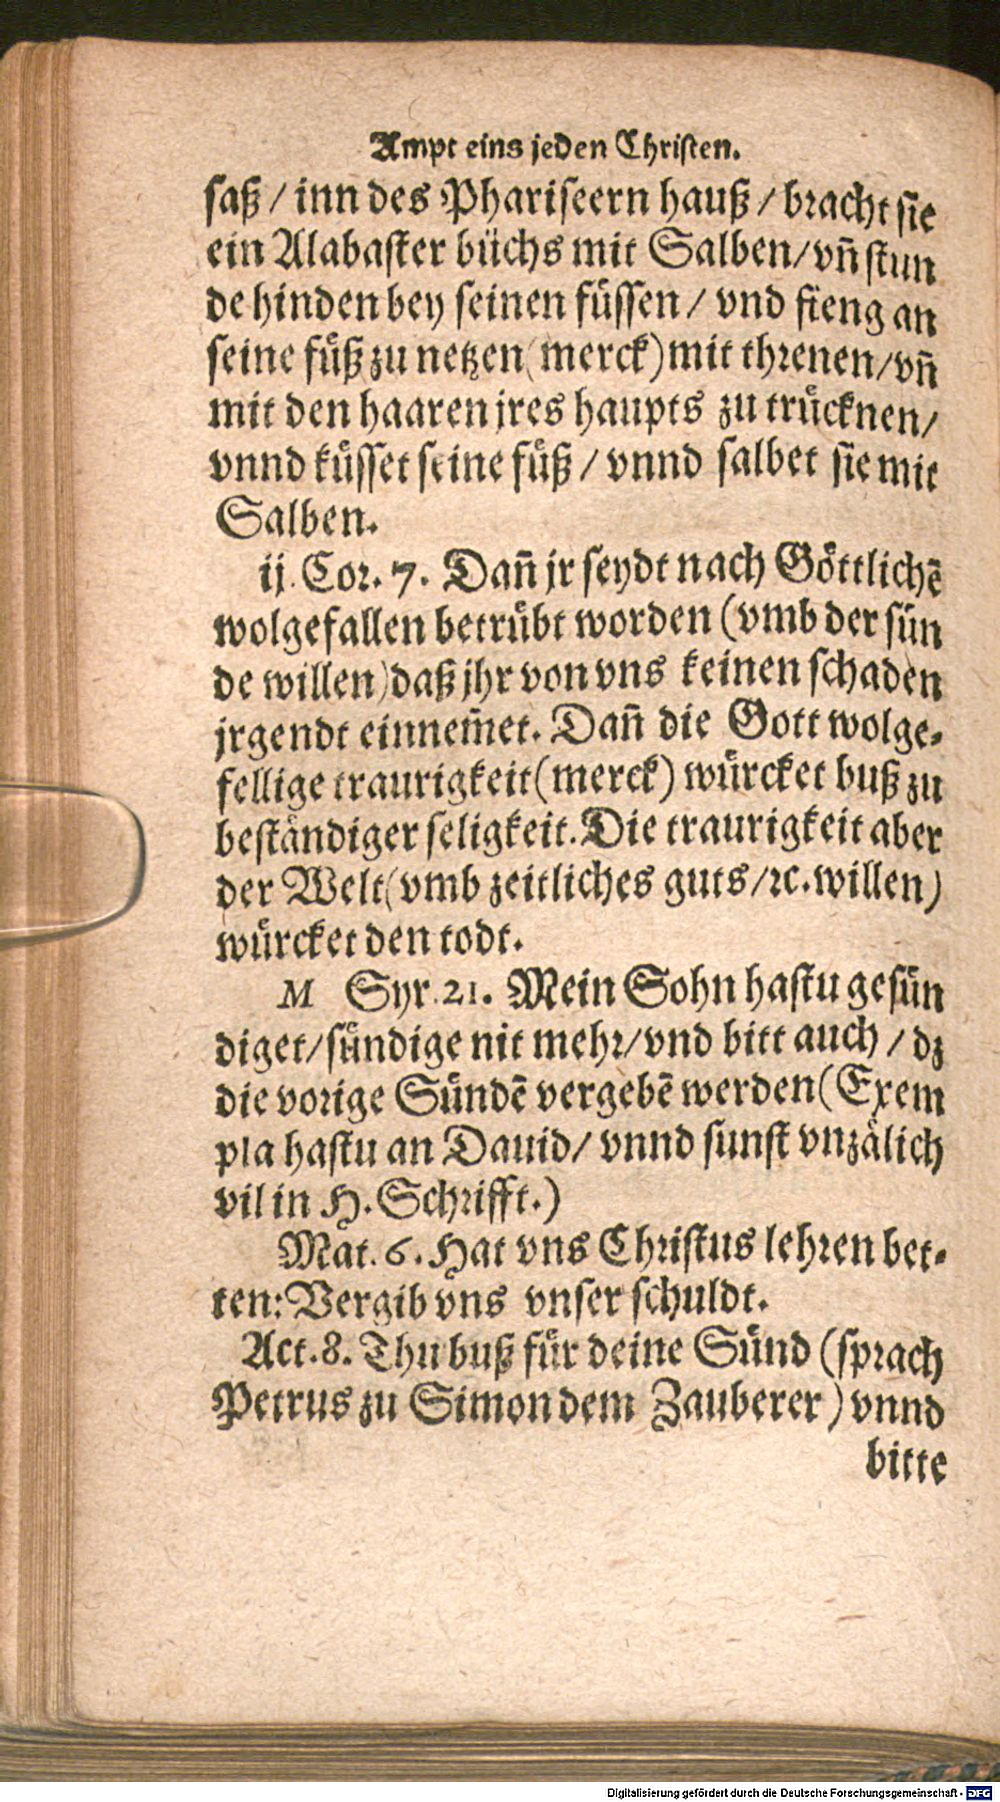 Ampt eins jeden Christen.
saß / inn des Phariseern hauß / bracht sie
ein Alabaster büchs mit Salben/ vn̄ stun
de hinden bey seinen füssen/ vnd fieng an
seine füß zu netzen (merck) mit threnen/ vn̄
mit den haaren jres haupts zu trücknen/
vnnd küsset seine füß / vnnd salbet sie mit
Salben.
ij. Cor. 7. Dan̄ jr seydt nach Göttlichē
wolgefallen betrübt worden (vmb der sün
de willen) daß jhr von vns keinen schaden
jrgendt einnem̄et. Dan̄ die Gott wolge-
fellige traurigkeit (merck) würcket buß zu
beständiger seligkeit. Die traurigkeit aber
der Welt (vmb zeitliches guts /ꝛc. willen)
würcket den todt.
M Syr. 21. Mein Sohn hastu gesün
diget/ sündige nit mehr/ vnd bitt auch / dz
die vorige Sündē vergebē werden (Exem
pla hastu an Dauid/ vnnd sunst vnzälich
vil in H. Schrifft.)
Mat. 6. Hat vns Christus lehren bet-
ten: Vergib vns vnser schuldt.
Act. 8. Thu buß für deine Sünd (sprach
Petrus zu Simon dem Zauberer) vnnd
bitte
Digitalisierung gefördert durch die Deutsche Forschungsgemeinschaft - DFG